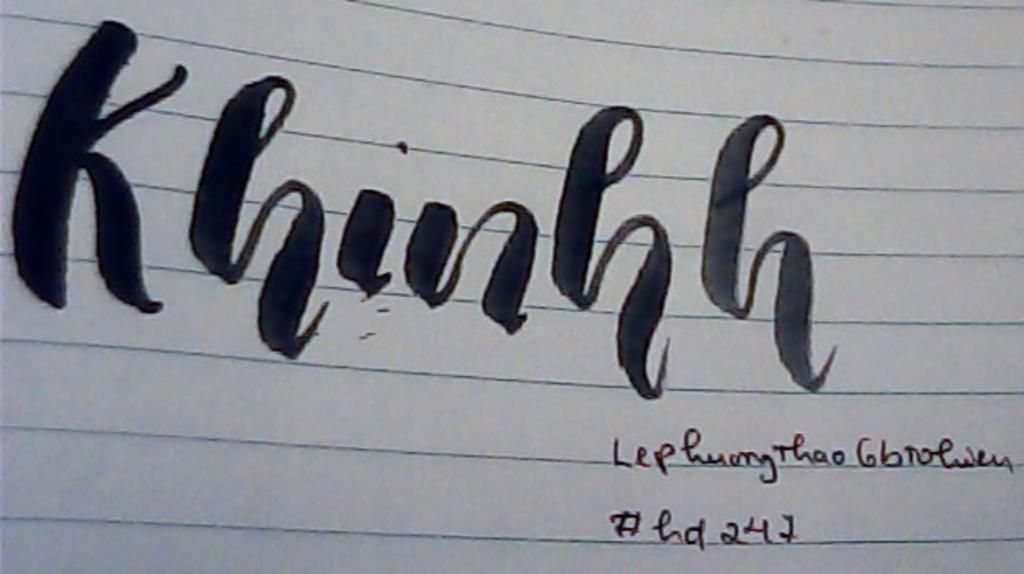 Khinhh
LephuongThao6btohien
#hd247